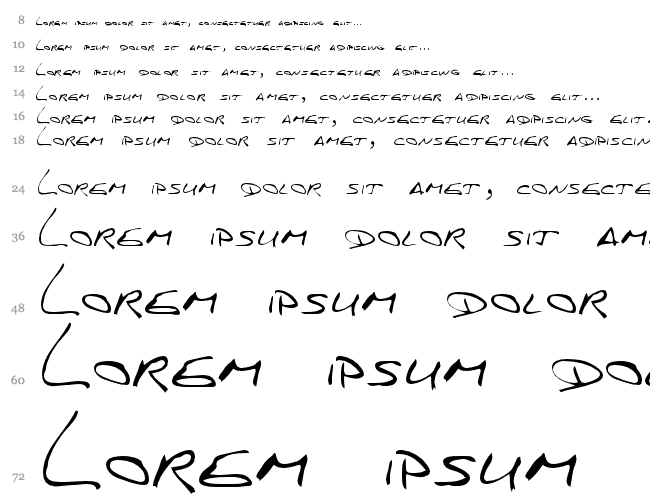 8 Lorem ipsum dolor sit amet, consectetuer adipiscing elit...
10 Lorem ipsum dolor sit amet, consectetuer adipiscing elit...
12 Lorem ipsum dolor sit amet, consectetuer adipiscing elit...
14 Lorem ipsum dolor sit amet, consectetuer adipiscing elit...
16 Lorem ipsum dolor sit amet, consectetuer adipiscing elit.
18 Lorem ipsum dolor sit amet, consectetuer adipiscin
24 Lorem ipsum dolor sit amet, consecte
36 Lorem ipsum dolor sit am
48 Lorem ipsum dolor
60 Lorem ipsum do
72 Lorem ipsum